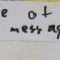 e of
messag